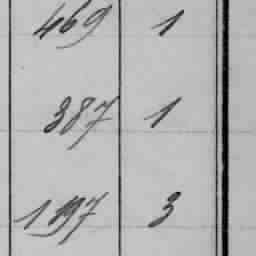 469 1
387 1
1197 3